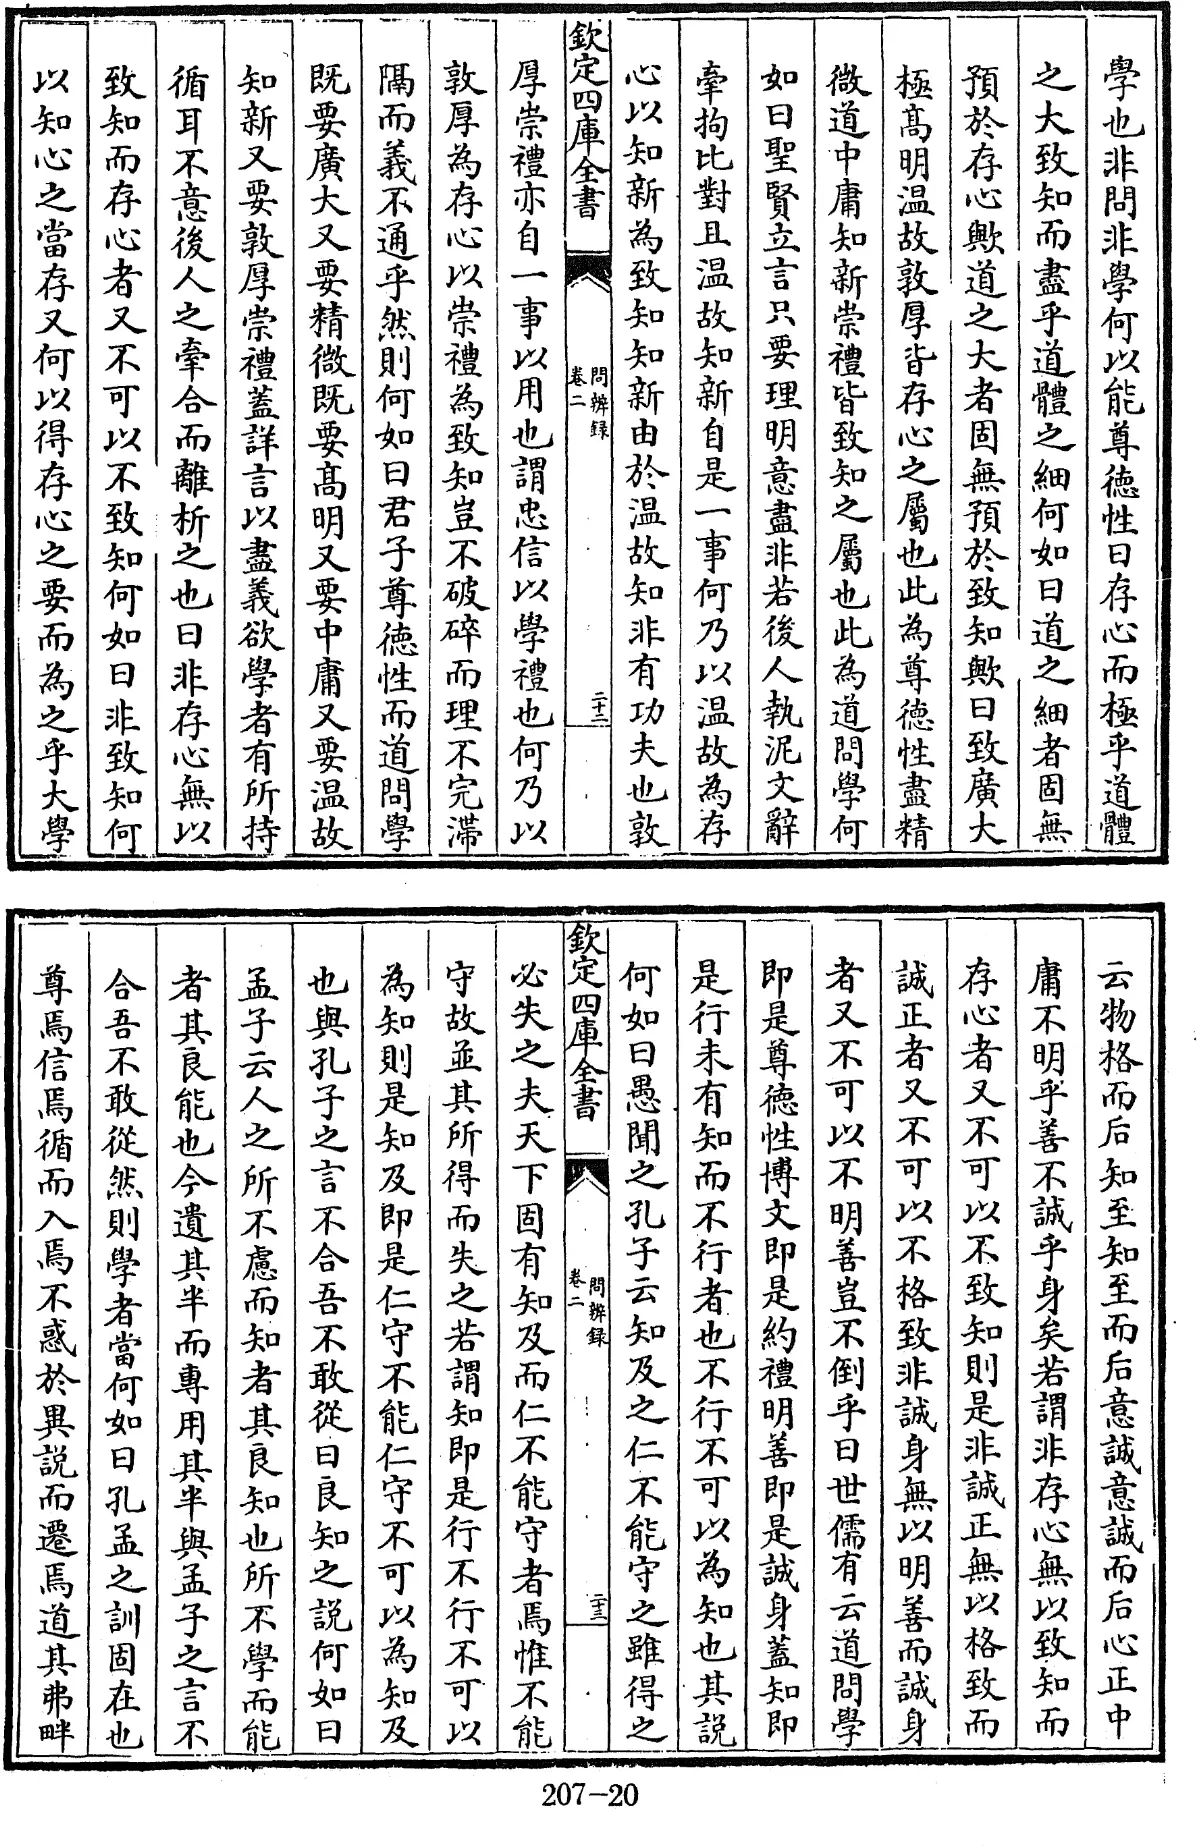 學也非問非學何以能尊德性曰存心而極乎道體
之大致知而盡乎道體之細何如曰道之細者固無
預於存心歟道之大者固無預於致知歟曰致廣大
極高明温故敦厚皆存心之屬也此為尊德性盡精
微道中庸知新崇禮皆致知之屬也此為道問學何
如曰聖賢立言只要理明意盡非若後人執泥文辭
牽拘比對且温故知新自是一事何乃以温故為存
心以知新為致知知新由於温故知非有功夫也敦
欽定四庫全書
問辨録
卷二
二十二
厚崇禮亦自一事以用也謂忠信以學禮也何乃以
敦厚為存心以崇禮為致知豈不破碎而理不完滯
隔而義不通乎然則何如曰君子尊德性而道問學
既要廣大又要精微既要高明又要中庸又要温故
知新又要敦厚崇禮蓋詳言以盡義欲學者有所持
循耳不意後人之牽合而離析之也曰非存心無以
致知而存心者又不可以不致知何如曰非致知何
以知心之當存又何以得存心之要而為之乎大學
云物格而后知至知至而后意誠意誠而后心正中
庸不明乎善不誠乎身矣若謂非存心無以致知而
存心者又不可以不致知則是非誠正無以格致而
誠正者又不可以不格致非誠身無以明善而誠身
者又不可以不明善豈不倒乎曰世儒有云道問學
即是尊德性博文即是約禮明善即是誠身蓋知即
是行未有知而不行者也不行不可以為知也其説
何如曰愚聞之孔子云知及之仁不能守之雖得之
欽定四庫全書
問辨録
卷二
二十三
必失之夫天下固有知及而仁不能守者焉惟不能
守故並其所得而失之若謂知即是行不行不可以
為知則是知及即是仁守不能仁守不可以為知及
也與孔子之言不合吾不敢從曰良知之説何如曰
孟子云人之所不慮而知者其良知也所不學而能
者其良能也今遺其半而專用其半與孟子之言不
合吾不敢從然則學者當何如曰孔孟之訓固在也
尊焉信焉循而入焉不惑於異説而遷焉道其弗畔
207-20